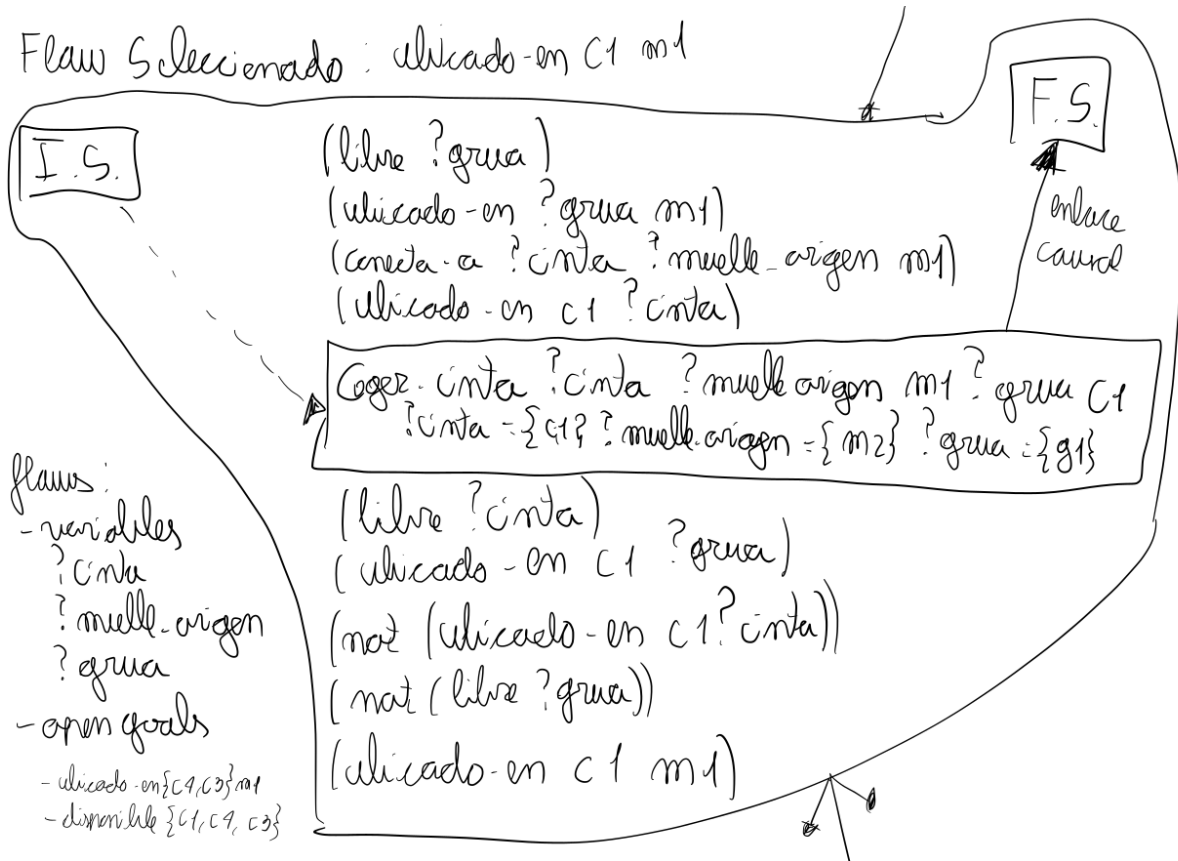 Flaw Seleccionado: ubicado-en C1 m1
I.S.
F.S.
(libre ?grua)
(ubicado-en ?grua m1)
(conecta-a ?cinta ?muelle-origen m1)
(ubicado-en c1 ?cinta)
enlace
causal
Coger-cinta ?cinta ?muelle origen m1 ?grua C1
?cinta={c1} ?muelle-origen={m2} ?grua={g1}
(libre ?cinta)
(ubicado-en C1 ?grua)
(not (ubicado-en C1 ?cinta))
(not (libre ?grua))
(ubicado-en C1 m1)
flaws:
-variables
?cinta
?muelle-origen
?grua
-open goals
-ubicado-en{C4,C3}m1
-disponible {C1,C4,C3}